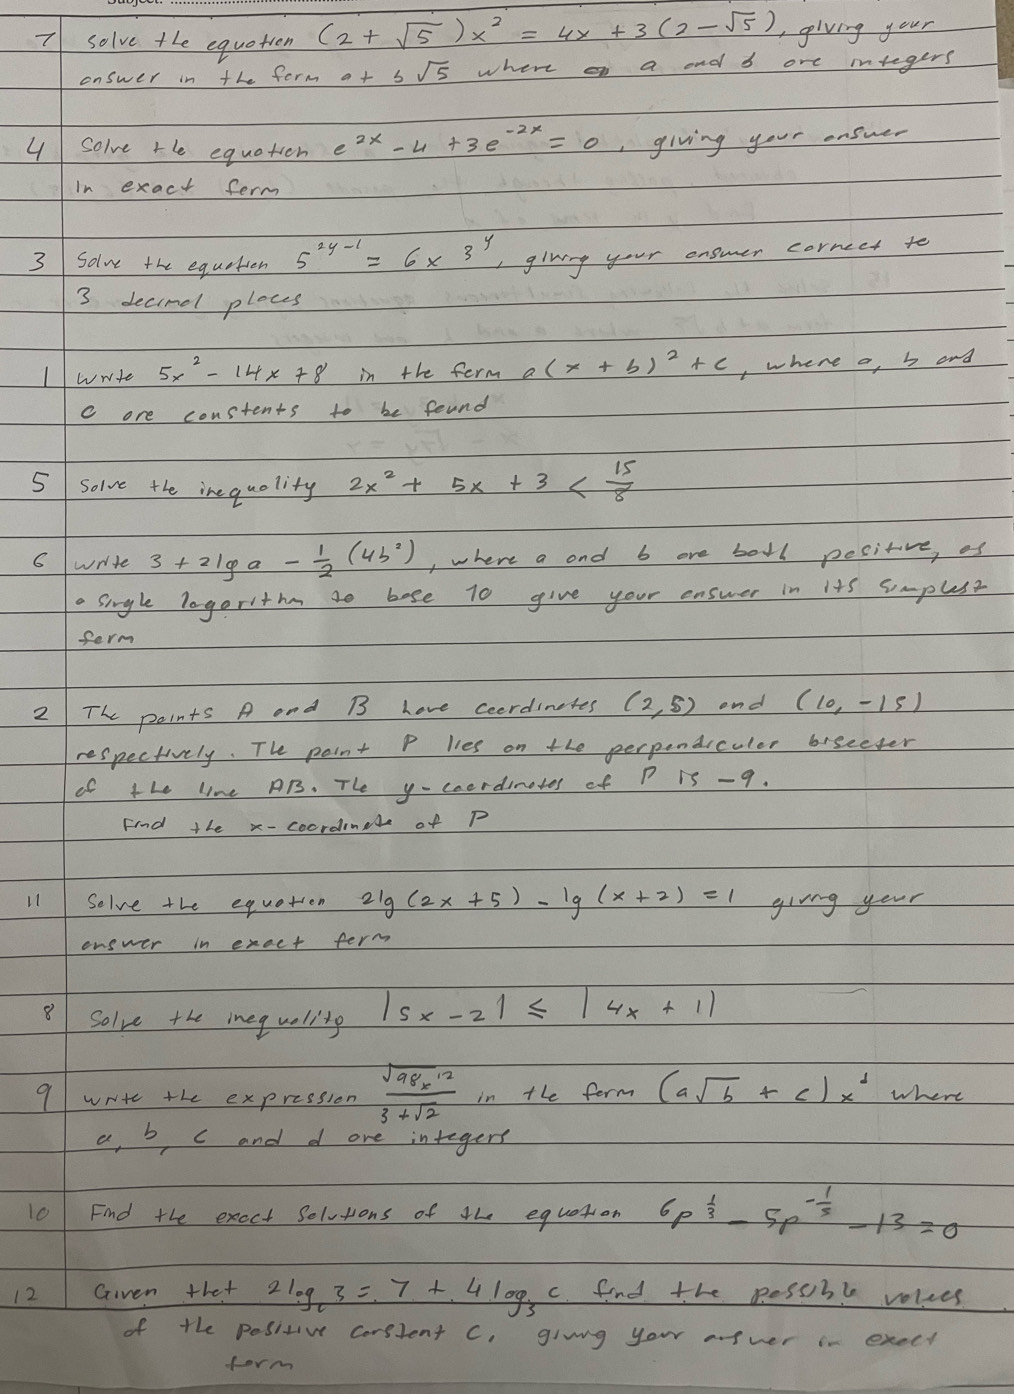 Subject:
7 Solve the equation (2 + √5)x² = 4x + 3(2 − √5), giving your
answer in the form a + b√5 where a and b are integers
4 Solve the equation e^{2x} − 4 + 3e^{−2x} = 0, giving your answer
In exact form
3 Solve the equation 5^{2y−1} = 6 × 3^y, giving your answer correct to
3 decimal places
1 Write 5x² − 14x + 8 in the form a(x + b)² + c, where a, b and
c are constants to be found
5 Solve the inequality 2x² + 5x + 3 < 15/8
6 Write 3 + 2lg a − 1/2 (4b²), where a and b are both positive, as
a single logarithm to base 10 give your answer in its simplest
form
2 The points A and B have coordinates (2,5) and (10, −15)
respectively. The point P lies on the perpendicular bisector
of the line AB. The y-coordinates of P is −9.
Find the x-coordinate of P
11 Solve the equation 2lg(2x + 5) − lg(x + 2) = 1 giving your
answer in exact form
8 Solve the inequality |5x − 2| ≤ |4x + 1|
9 Write the expression √98x¹² / 3 + √2 in the form (a√b + c)x^d where
a, b, c and d are integers
10 Find the exact solutions of the equation 6p^{1/3} − 5p^{−1/3} − 13 = 0
12 Given that 2log_c 3 = 7 + 4log_3 c find the possible values
of the positive constant c, giving your answer in exact
form